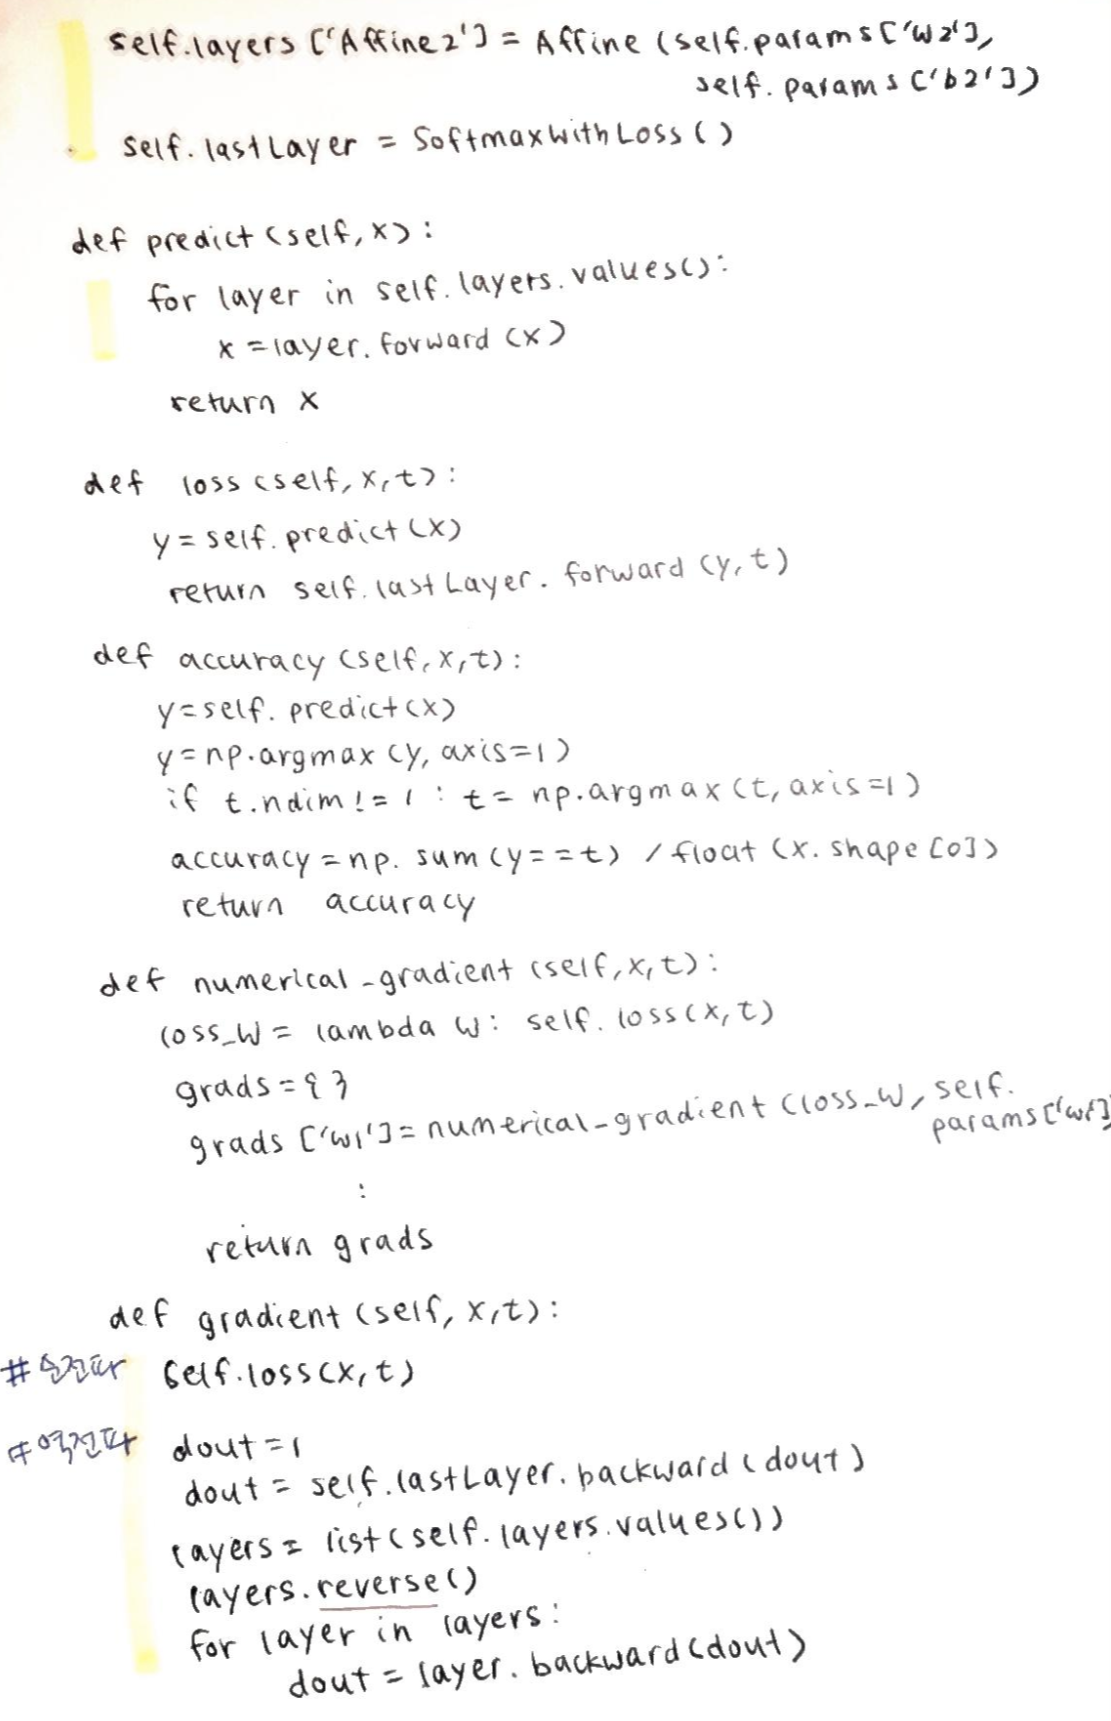 self.layers ['Affine2'] = Affine (self.params['W2'],
self.params ['b2'])
self.lastLayer = SoftmaxwithLoss ()
def predict (self, x):
for layer in self.layers.values():
x = layer.forward (x)
return x
def loss (self, x, t):
y = self.predict (x)
return self.lastLayer.forward (y, t)
def accuracy (self, x, t):
y = self.predict (x)
y = np.argmax (y, axis=1)
if t.ndim != 1 : t = np.argmax (t, axis=1)
accuracy = np.sum (y == t) / float (x.shape [0])
return accuracy
def numerical_gradient (self, x, t):
loss_W = lambda W: self.loss (x, t)
grads = { }
grads ['W1'] = numerical_gradient (loss_W, self.
params['W1']
:
return grads
def gradient (self, x, t):
#순전파 self.loss (x, t)
#역전파 dout = 1
dout = self.lastLayer.backward (dout)
layers = list (self.layers.values())
layers.reverse()
for layer in layers:
dout = layer.backward (dout)